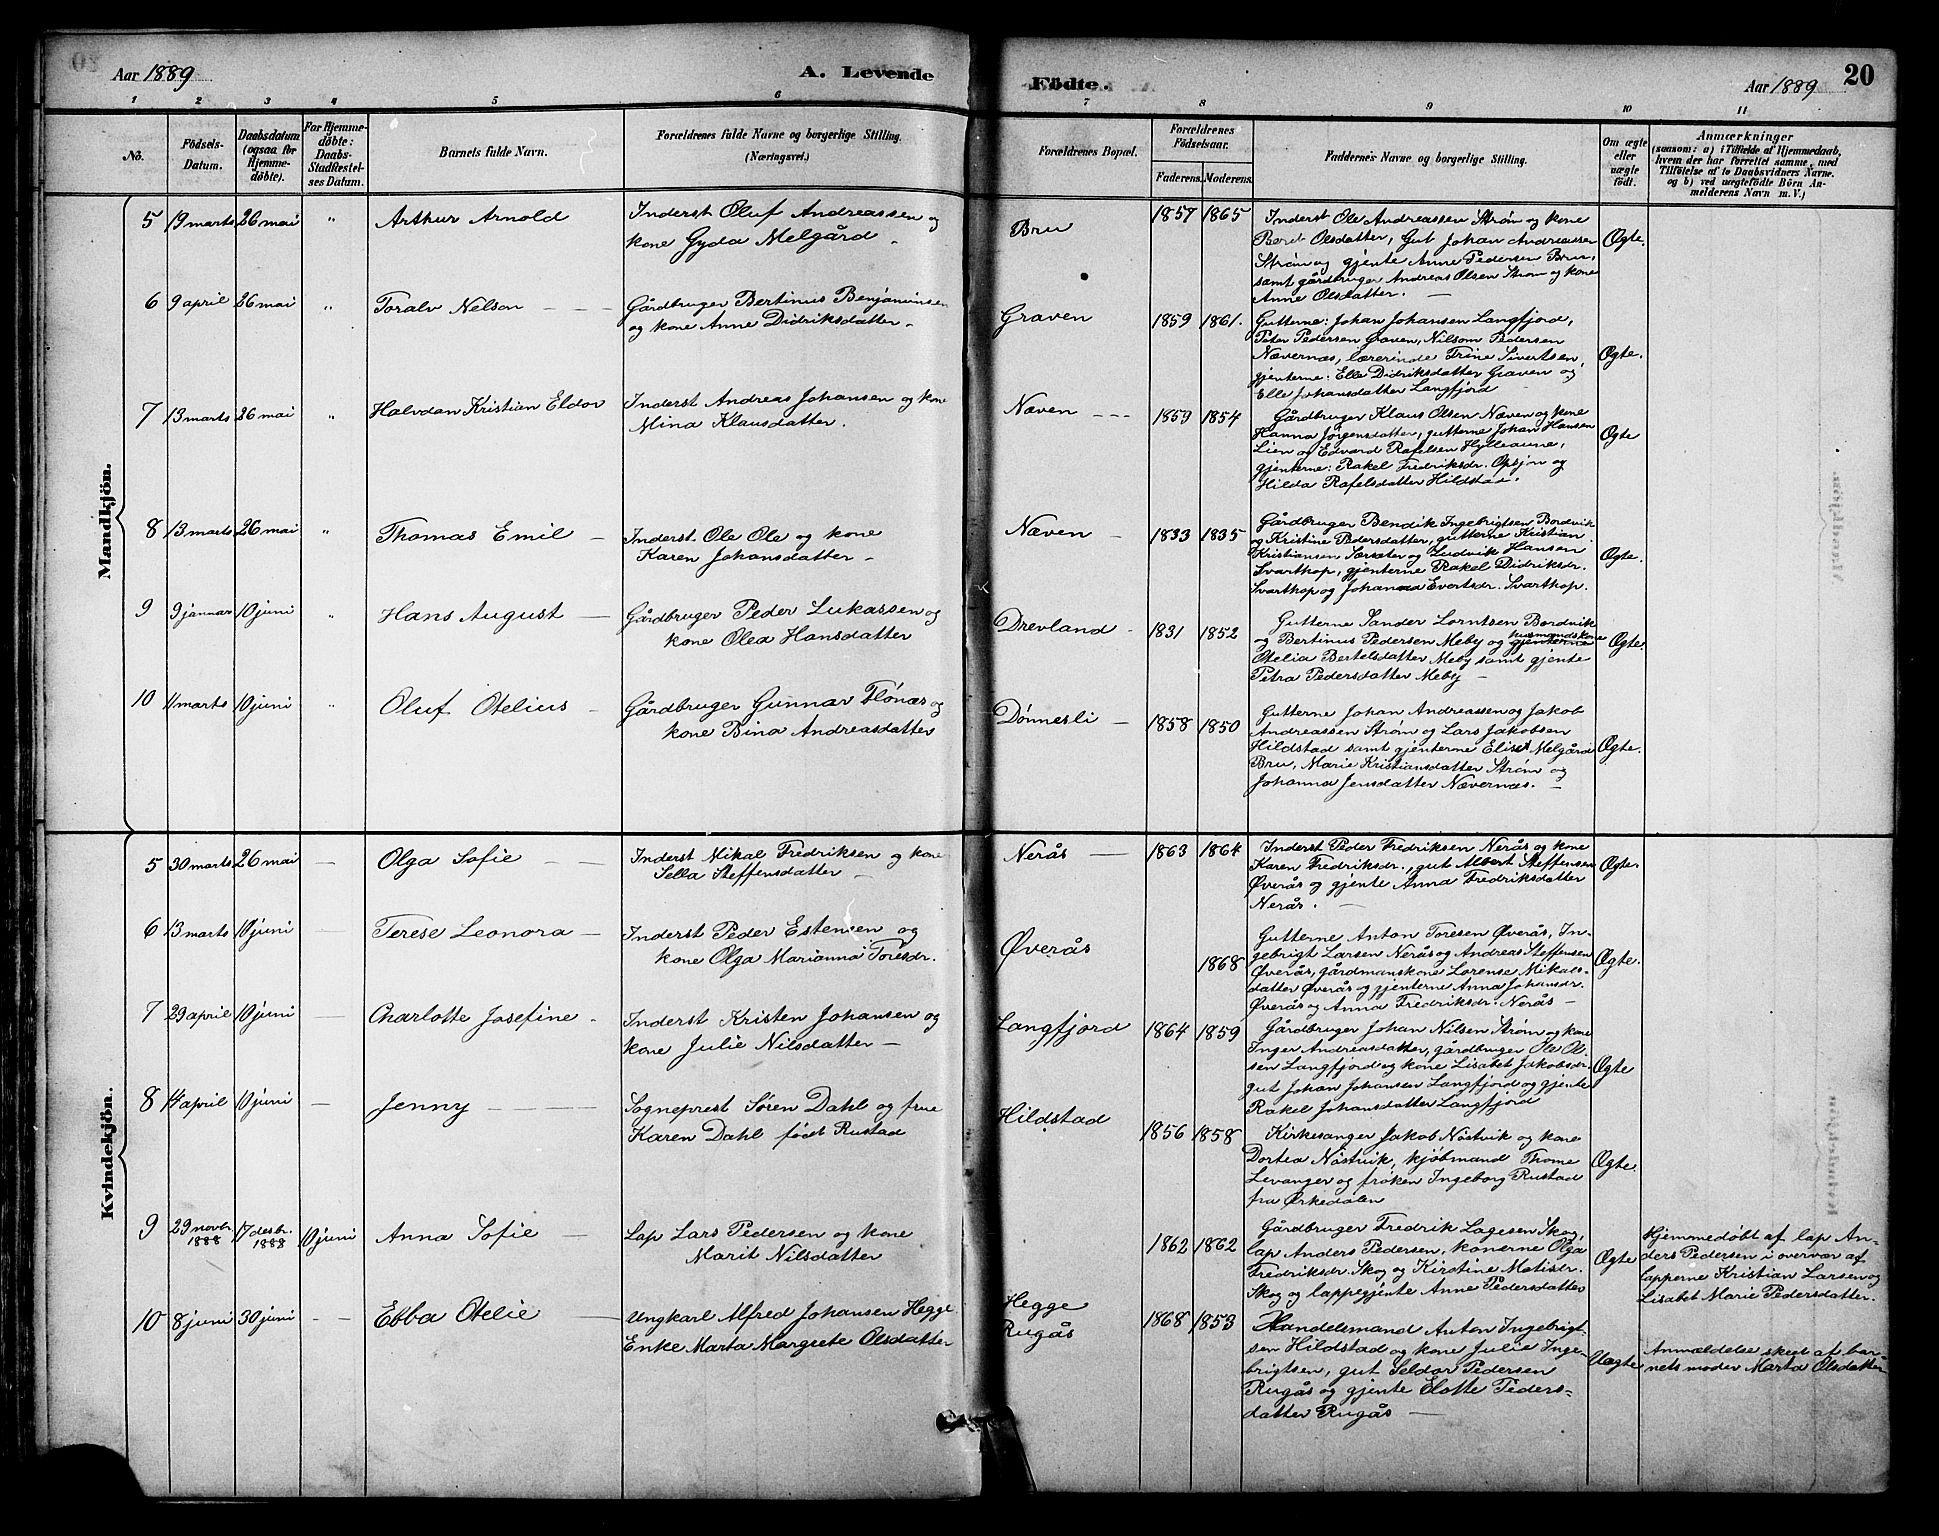 Aar 1889
A. Levende
Födte.
Aar 1889
20
1 2 3 4 5 6 7 8 9 10 11
No.
Födsels-Datum.
Daabsdatum (ogsaa for Hjemmedöbte).
For Hjemmedöbte: Daabs-Stadfæstelses Datum.
Barnets fulde Navn.
Forældrenes fulde Navne og borgerlige Stilling.
(Næringsvei.)
Forældrenes Bopæl.
Forældrenes Födselsaar.
Faderens. Moderens.
Faddernes Navne og borgerlige Stilling.
Om ægte eller uægte födt.
Anmærkninger
(saasom: a) i Tilfælde af Hjemmedaab,
hvem der har forrettet samme, med
Tilföielse af to Daabsvidners Navne.
og b) ved uægtefödte Börn An-
melderens Navn m. V.)
Mandkjön.
5 19 marts 26 mai " Arthur Arnold
Inderst Oluf Andreassen og
kone Gyda Melgård
Bru 1857 1865
Inderst Ole Andreassen Strøm og kone
Beret Olsdatter, Gut Johan Andreassen
Strøm og gjente Anne Pedersen Bru,
samt gårdbruger Andreas Olsen Strøm og kone
Anne Olsdatter. —
Ægte.
6 9 april 26 mai " Toralv Nelson — —
Gårdbruger Bertinus Benjaminsen
og kone Anne Didriksdatter
Graven 1859 1861.
Gutterne: Johan Johansen Langfjord,
Peter Pedersen Graven, Nilsom Pedersen
Nævernæs, lærerinde Trine Sivertsen,
gjenterne: Elle Didriksdatter Graven og
Elle Johansdatter Langfjord —
Ægte.
7 13 marts 26 mai " Halvdan Kristian Eldor
Inderst Andreas Johansen og kone
Mina Klausdatter.
Næven - - - 1859 1854
Gårdbruger Klaus Olsen Næven og kone
Hanna Jørgensdatter, gutterne Johan Hansen
Lien og Edvard Rafelsen Hylleaune,
gjenterne: Rakel Fredriksdr. Opsjøn og
Hilda Rafelsdatter Hildstad.
Ægte
8 13 marts 26 mai " Thomas Emil —
Inderst Ole Ole og kone
Karen Johansdatter —
Næven - 1833 1835
Gårdbruger Bendik Ingebrigtsen Bordvik
og Kristine Pedersdatter, gutterne Kristian
Kristiansen Sørsæter og Ludvik Hansen
Svarthop, gjenterne Rakel Didriksdr.
Svarthop og Johanna Evertsdr. Svarthop.
Ægte.
9 9 januar 10 juni " Hans August —
Gårdbruger Peder Lukassen og
kone Olea Hansdatter
Drevland - 1831 1852
Gutterne Sander Lorntsen Bordvik
og Bertinus Pedersen Meby og husmandskone
Otelia Bertelsdatter Meby samt gjente
Petra Pedersdatter Meby —
Ægte.
10 11 marts 10 juni " Oluf Otelius -
Gårdbruger Gunnar Flönæs og
kone Bina Andreasdatter
Dønnesli — 1858 1850
Gutterne Johan Andreassen og Jakob
Andreassen Strøm og Lars Jakobsen
Hildstad samt gjenterne Elise Melgård
Bru, Marie Kristiansdatter Strøm og
Johanna Jensdatter Nævernæs. —
Ægte.
Kvindekjön.
5 30 marts 26 mai — Olga Sofie — —
Inderst Mikal Fredriksen og kone
Sella Steffensdatter —
Nerås — 1863 1864
Inderst Peder Fredriksen Nerås og kone
Karen Fredriksdr., gut Albert Steffensen
Øverås og gjente Anna Fredriksdatter
Nerås. —
Ægte.
6 13 marts 10 juni — Terese Leonora —
Inderst Peder Estensen og
kone Olga Marianna Toresdr.
Øverås 1868
Gutterne Anton Toresen Øverås, In-
gebrigt Larsen Nerås og Andreas Steffensen
Øverås, gårdmanskone Lorense Mikals-
datter Øverås og gjenterne Anna Johansdr.
Øverås og Anna Fredriksdr. Nerås —
Ægte.
7 29 april 10 juni — Charlotte Josefine -
Inderst Kristen Johansen og
kone Julie Nilsdatter —
Langfjord 1864 1859
Gårdbruger Johan Nilsen Strøm og kone
Inger Andreasdatter, gårdbruger Ole Ol-
sen Langfjord og kone Lisabet Jakobsdr.
gut Johan Johansen Langfjord og gjente
Rakel Johansdatter Langfjord
Ægte
8 14 april 10 juni — Jenny — — —
Sogneprest Søren Dahl og frue
Karen Dahl født Rustad
Hildstad 1856 1858
Kirkesanger Jakob Nöstvik og kone
Dortea Nöstvik, kjöbmand Thome
Levanger og frøken Ingeborg Rustad
fra Ørkedalen
Ægte.
9 29 novbr. 1888 17 desbr. 1888 10 juni Anna Sofie —
Lap Lars Pedersen og kone
Marit Nilsdatter
1862 1862
Gårdbruger Fredrik Lagesen Skog,
lap Anders Pedersen, konerne Olga
Fredriksdr. Skog og Kirstine Matisdr.
Skog og lappegjente Anne Pedersdatter
Ægte
Hjemmedøbt af lap An-
ders Pedersen i overvær af
lapperne Kristian Larsen og
Lisabet Marie Pedersdatter.
10 8 juni 30 juni — Ebba Otelie —
Ungkarl Alfred Johansen Hegge.
Enke Marta Margrete Olsdatter
Hegge
Rugås
1868 1853
Handelsmand Anton Ingebrigt-
sen Hildstad og kone Julie Inge-
brigtsen, gut Seldor Pedersen
Rugås og gjente Elotte Peders-
datter Rugås —
Uægte
Anmældelse skeet af bar-
nets moder Marta Olsdatter